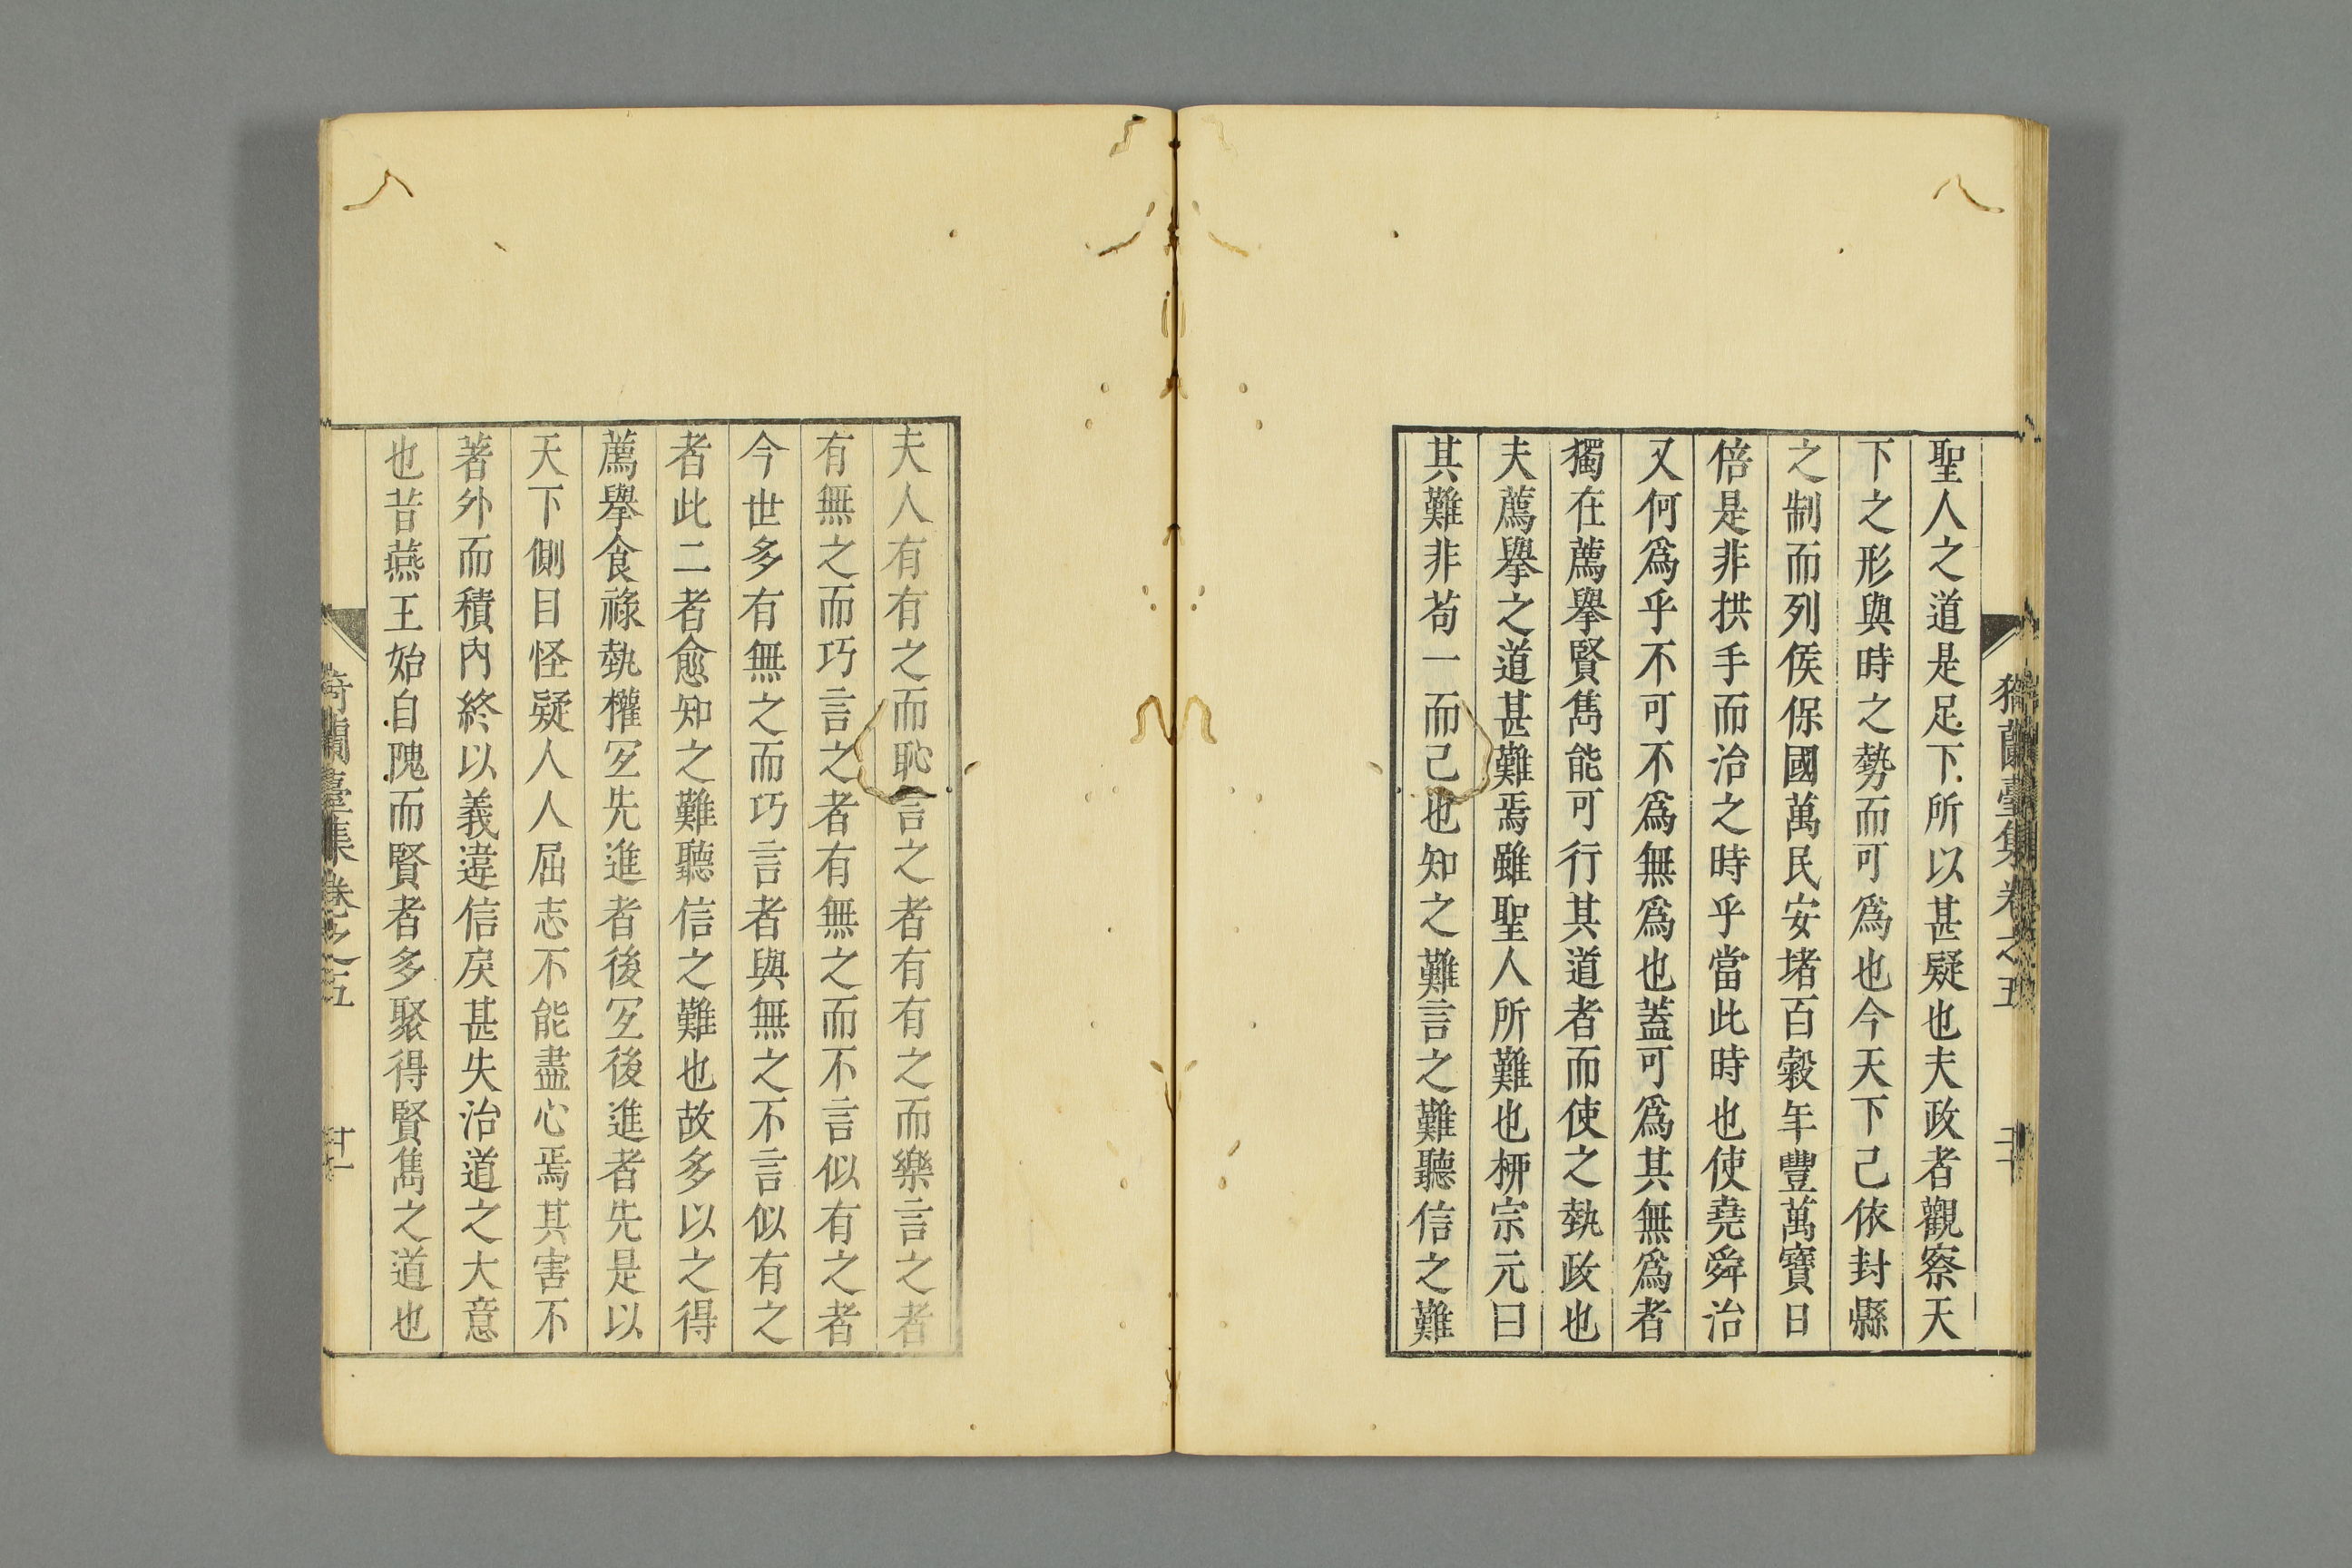 聖人之道是足下所以甚疑也夫政者觀察天
下之形與時之勢而可爲也今天下己依封縣
之制而列侯保國萬民安堵百穀年豐萬寶日
倍是非拱手而治之時乎當此時也使堯舜治
又何爲乎不可不爲無爲也蓋可爲其無爲者
獨在薦擧賢雋能可行其道者而使之執政也
夫薦擧之道甚難焉雖聖人所難也栁宗元曰
其難非苟一而己也知之難言之難聽信之難
夫人有有之而恥言之者有有之而樂言之者
有無之而巧言之者有無之而不言似有之者
今世多有無之而巧言者與無之不言似有之
者此二者愈知之難聽信之難也故多以之得
薦擧食祿執權㝎先進者後㝎後進者先是以
天下側目怪疑人人屈志不能盡心焉其害不
著外而積內終以義違信戾甚失治道之大意
也昔燕王始自隗而賢者多聚得賢雋之道也
猗蘭臺集卷之五